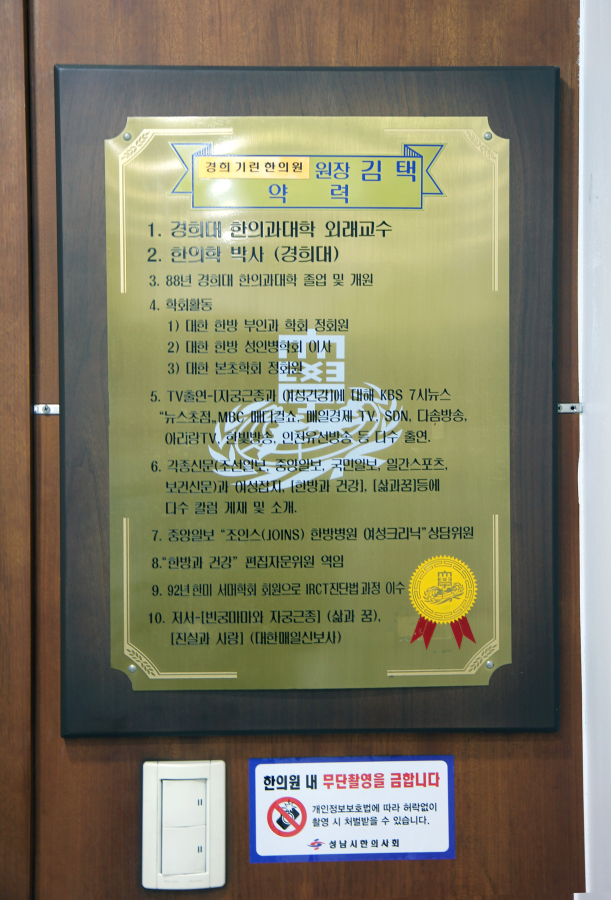 경희 기린 한의원 원장 김 택
약 력
1. 경희대 한의과대학 외래교수
2. 한의학 박사 (경희대)
3. 88년 경희대 한의과대학 졸업 및 개원
4. 학회활동
1) 대한 한방 부인과 학회 정회원
2) 대한 한방 성인병학회 이사
3) 대한 본초학회 정회원
5. TV출연-[자궁근종과 여성건강]에 대해 KBS 7시뉴스
"뉴스초점, MBC 메디컬쇼, 매일경제 TV, SDN, 다솜방송,
아리랑TV, 한빛방송, 인천유선방송 등 다수 출연.
6. 각종신문(조선일보, 중앙일보, 국민일보, 일간스포츠,
보건신문)과 여성잡지, [한방과 건강], [삶과꿈]등에
다수 칼럼 게재 및 소개.
7. 중앙일보 "조인스(JOINS) 한방병원 여성크리닉" 상담위원
8. "한방과 건강" 편집자문위원 역임
9. 92년 한미 서머학회 회원으로 IRCT진단법 과정 이수
10. 저서-[빈궁마마와 자궁근종] (삶과 꿈),
[진실과 사랑] (대한매일신보사)
한의원 내 무단촬영을 금합니다
개인정보보호법에 따라 허락없이
촬영 시 처벌받을 수 있습니다.
성남시한의사회